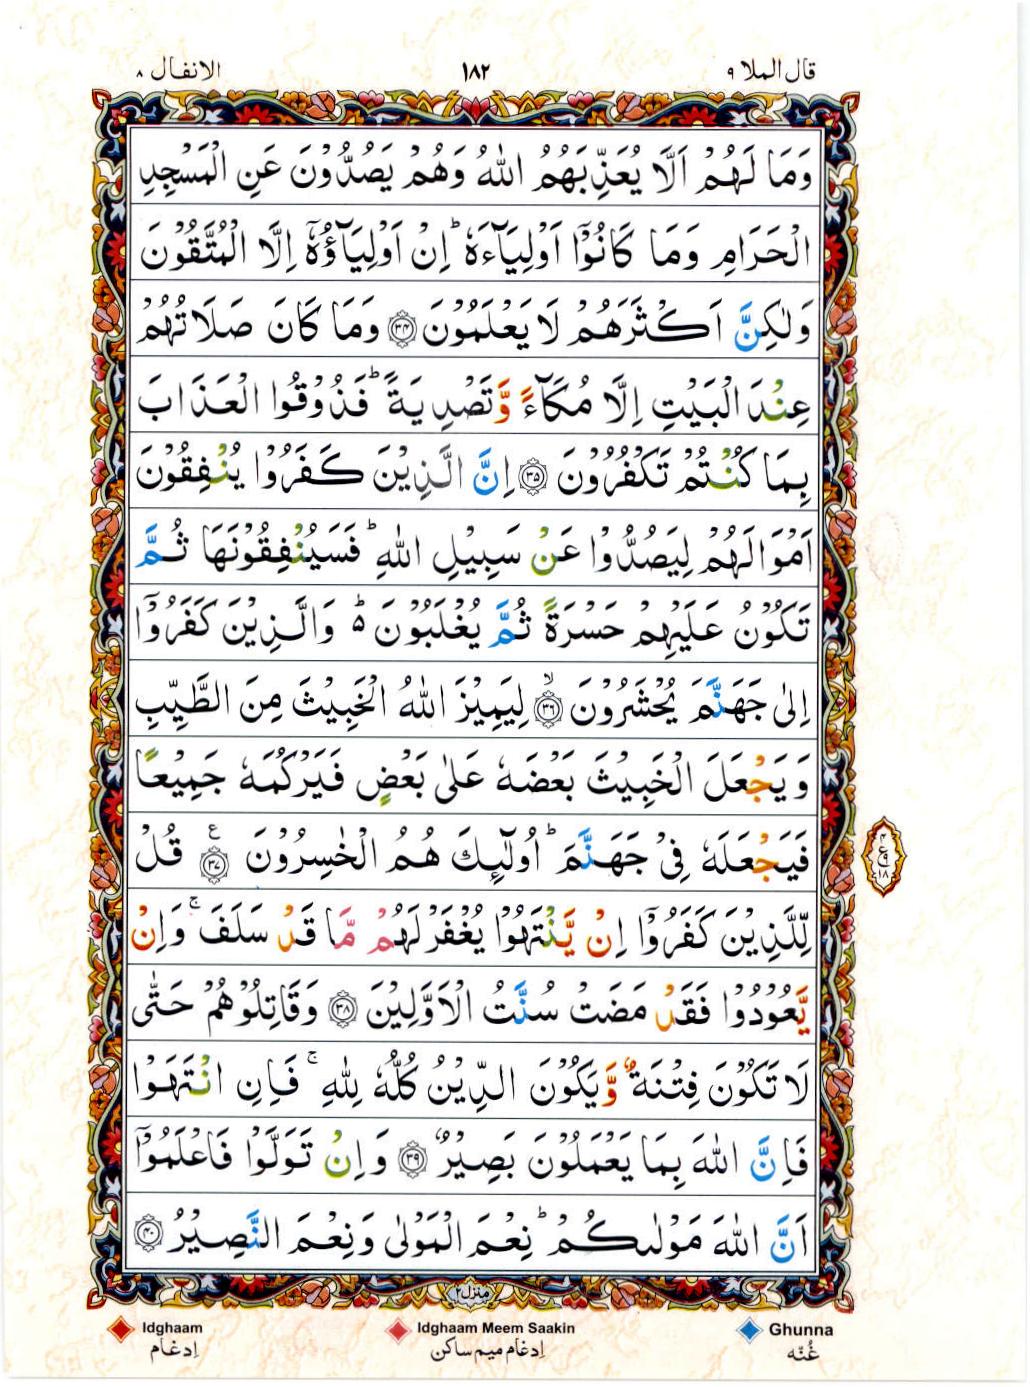 قال الملا ۹
۱۸۲
الانفال ۸
وَمَا لَهُمْ اَلَّا يُعَذِّبَهُمُ اللّٰهُ وَهُمْ يَصُدُّوْنَ عَنِ الْمَسْجِدِ
الْحَرَامِ وَمَا كَانُوْۤا اَوْلِيَآءَهٗ ؕ اِنْ اَوْلِيَآؤُهٗۤ اِلَّا الْمُتَّقُوْنَ
وَلٰكِنَّ اَكْثَرَهُمْ لَا يَعْلَمُوْنَ ﴿۳۴﴾ وَمَا كَانَ صَلَاتُهُمْ
عِنْدَ الْبَيْتِ اِلَّا مُكَآءً وَّتَصْدِيَةً ؕ فَذُوْقُوا الْعَذَابَ
بِمَا كُنْتُمْ تَكْفُرُوْنَ ﴿۳۵﴾ اِنَّ الَّذِيْنَ كَفَرُوْا يُنْفِقُوْنَ
اَمْوَالَهُمْ لِيَصُدُّوْا عَنْ سَبِيْلِ اللّٰهِ ؕ فَسَيُنْفِقُوْنَهَا ثُمَّ
تَكُوْنُ عَلَيْهِمْ حَسْرَةً ثُمَّ يُغْلَبُوْنَ ؕ۬ وَالَّذِيْنَ كَفَرُوْۤا
اِلٰى جَهَنَّمَ يُحْشَرُوْنَ ﴿ۙ۳۶﴾ لِيَمِيْزَ اللّٰهُ الْخَبِيْثَ مِنَ الطَّيِّبِ
وَيَجْعَلَ الْخَبِيْثَ بَعْضَهٗ عَلٰى بَعْضٍ فَيَرْكُمَهٗ جَمِيْعًا
فَيَجْعَلَهٗ فِىْ جَهَنَّمَ ؕ اُولٰٓئِكَ هُمُ الْخٰسِرُوْنَ ﴿۳۷﴾ ع قُلْ
لِّلَّذِيْنَ كَفَرُوْۤا اِنْ يَّنْتَهُوْا يُغْفَرْ لَهُمْ مَّا قَدْ سَلَفَ ۚ وَاِنْ
يَّعُوْدُوْا فَقَدْ مَضَتْ سُنَّتُ الْاَوَّلِيْنَ ﴿۳۸﴾ وَقَاتِلُوْهُمْ حَتّٰى
لَا تَكُوْنَ فِتْنَةٌ وَّيَكُوْنَ الدِّيْنُ كُلُّهٗ لِلّٰهِ ۚ فَاِنِ انْتَهَوْا
فَاِنَّ اللّٰهَ بِمَا يَعْمَلُوْنَ بَصِيْرٌ ﴿۳۹﴾ وَاِنْ تَوَلَّوْا فَاعْلَمُوْۤا
اَنَّ اللّٰهَ مَوْلٰٮكُمْ ؕ نِعْمَ الْمَوْلٰى وَنِعْمَ النَّصِيْرُ ﴿۴۰﴾
منزل۲
Idghaam
ادغام
Idghaam Meem Saakin
ادغام میم ساکن
Ghunna
غُنّه